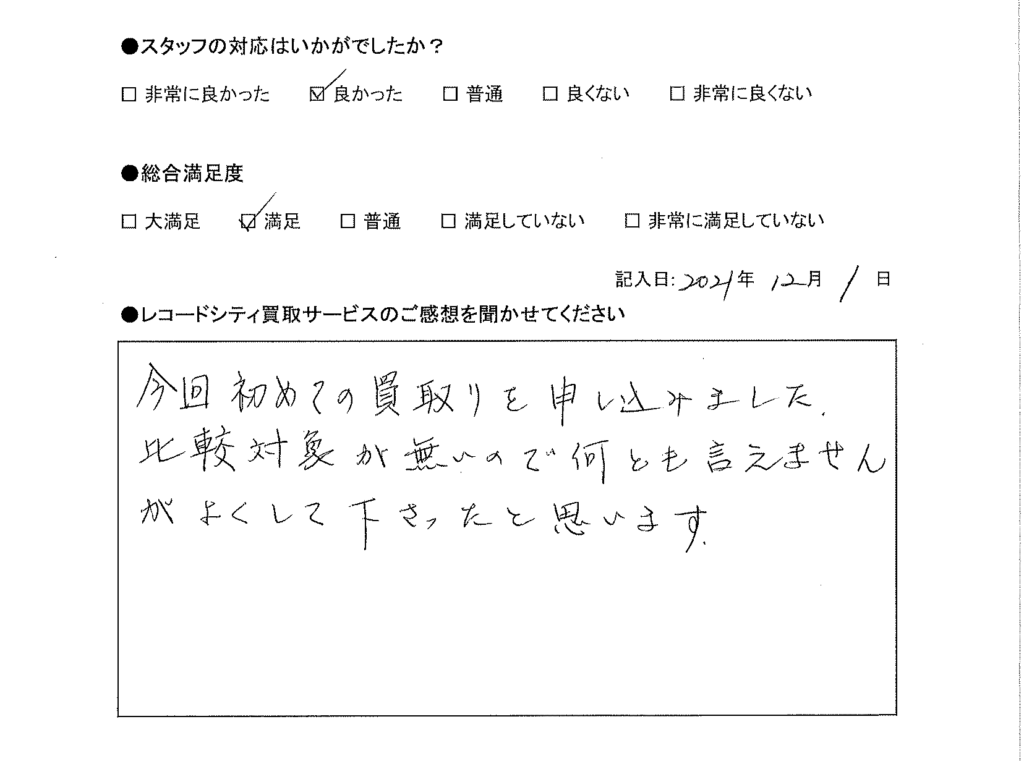 ●スタッフの対応はいかがでしたか？
□ 非常に良かった ☑ 良かった □ 普通 □ 良くない □ 非常に良くない
●総合満足度
□ 大満足 ☑ 満足 □ 普通 □ 満足していない □ 非常に満足していない
記入日: 2021年 12月 1日
●レコードシティ買取サービスのご感想を聞かせてください
今回初めての買取りを申し込みました.
比較対象が無いので何とも言えません
がよくして下さったと思います.